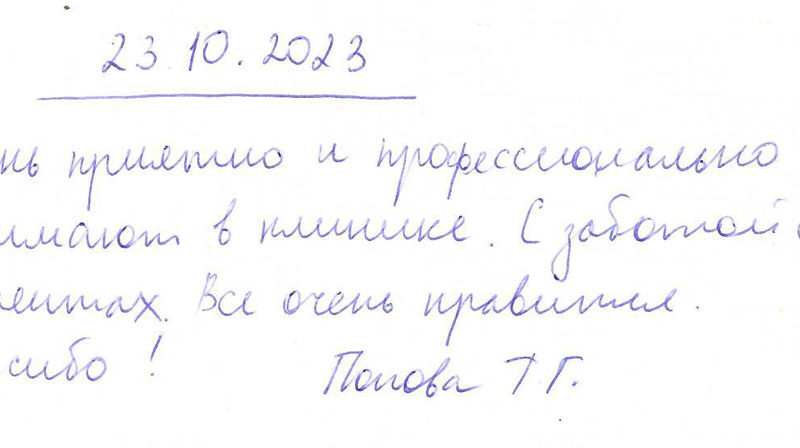 23.10.2023
нь приятно и профессионально
имают в клинике. С заботой
иентах. Все очень нравится.
сибо! Попова Т Г.